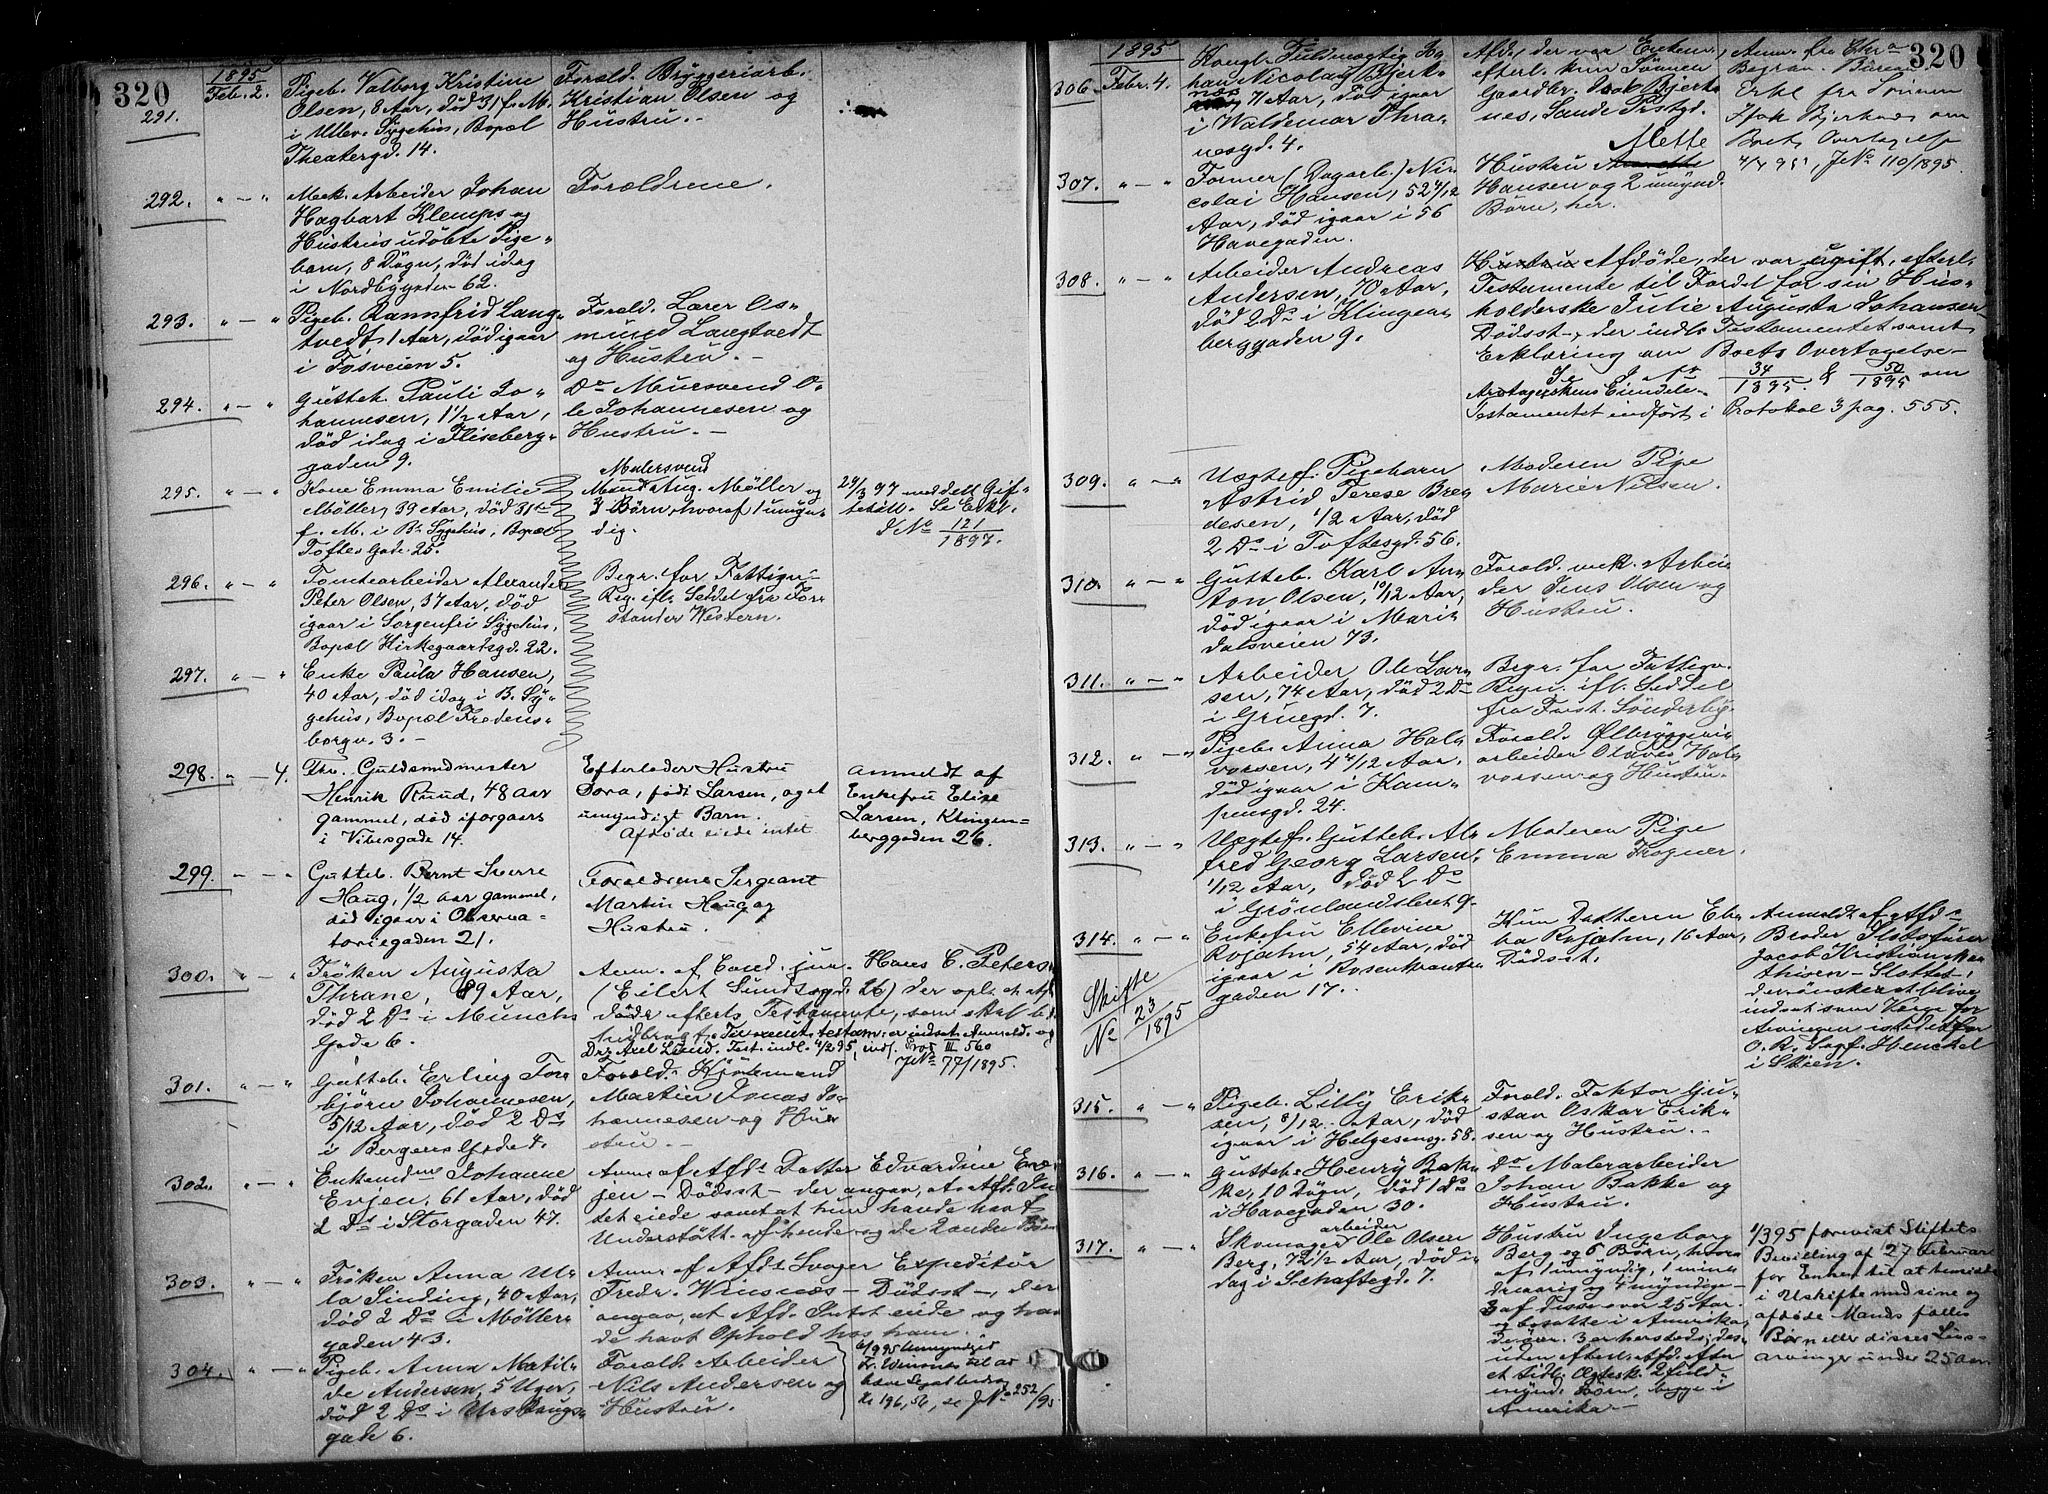 320
1895
Feb. 2.
291.
Pigeb. Valborg Kristine
Olsen, 8 Aar, død 31/1 f. M.
i Ullev. Sygehus, Bopæl
Theatergd. 14.
Foræld. Bryggeriarb.
Kristian Olsen og
Hustru. -
292. " - "
Mek. Arbeider Johan
Hagbart Klemps og
Hustrus udøbte Pige-
barn, 8 Døgn, død idag
i Nordbygaden 62.
Forældrene.
293. " - "
Pigeb. Rannfrid Lang-
tvedt, 1 Aar, død igaar
i Fosveien 5.
Foræld. Lærer Os-
mund Langtvedt
og Hustru. -
294. " - "
Gutteb. Pauli Jo-
hannesen, 1 1/2 Aar,
død idag i Fliseberg-
gaden 9.
Do Mursvend O-
le Johannesen og
Hustru. -
295. " - "
Kone Emma Emilie
Møller, 39 Aar, død 31te
f. M. i B. Sygehus, Bopæl
Toftes Gade 25.
Malersvend
Mand Aug. Møller og
3 Børn, hvoraf 1 umyn-
dig.
29/3 97 meddelt Gif-
tebill. Se Erkl.
J No 121/1897.
296. " - "
Tomtearbeider Alexander
Peter Olsen, 37 Aar, død
igaar i Sorgenfri Sygehus,
Bopæl Kirkegaartsgd. 22.
Begr. for Fattigv.
Reg. ifl. Seddel fra For-
stander Western.
297. " - "
Enke Paula Hansen,
40 Aar, død idag i B. Sy-
gehus, Bopæl Fredens-
borgv. 3. -
298. " - 4.
Fhv. Guldsmedmester
Henrik Ruud, 48 aar
gammel, død iforgaars
i Vibesgade 14.
Efterlader Hustru
Dora, født Larsen, og et
umyndigt Barn.
Afdøde eiede intet
Anmeldt af
Enkefru Elise
Larsen, Klingen-
berggaden 26.
299. " - "
Gutteb. Bernt Sverre
Haug, 1/2 aar gammel,
død igaar i Observa-
toriegaden 21.
Forældrene Sergeant
Martin Haug og
Hustru.
300. " - "
Frøken Augusta
Thrane, 89 Aar,
død 2 Ds i Munchs
Gade 6.
Anm. af Cand. jur. Hans C. Peters
(Eilert Sundtsgd. 26) der opl. at af-
døde efterl. Testamente, som skal bl.
J No 77/1895.
301. " - "
Gutteb. Erling Tor-
bjørn Johannesen,
5/12 Aar, død 2 Ds
i Bergers Gade 4.
Foræld. Kjøremand
Martin Jonas Jo-
hannesen og Hu-
stru. -
302. " - "
Enkemdme Johanne
Evjen, 61 Aar, død
2 Ds i Storgaden 47.
Anm. af Afds Datter Edvardine Ev-
jen - Dødsst - der angav, at Afd. In-
tet eiede samt at hun havde havt
Understøtt. af hende og de 2 andre Børn
303. " - "
Frøken Anna Ul-
la Sinding, 40 Aar,
død 2 Ds i Møller-
gaden 43.
Anm. af Afds Svoger Expeditør
Fredr. Winsnes - Dødsst -, der
angav, at Afd. Intet eiede og hav-
de havt Ophold hos ham.
304. " - "
Pigeb. Anna Matil-
de Andersen, 5 Uger,
død 2 Ds i Urstaugs-
gade 6.
Foræld. Arbeider
Nils Andersen og
Hustru.
Kr 196,56, se J No 252/95
320
1895
306. Febr. 4.
Kongl. Fuldmægtig Jo-
han Nicolay Bjerk-
næs 71 Aar, død igaar
i Waldemar Thra-
nesgd. 4.
Afd., der var Enkem.,
efterl. kun Sønnen
Gaardbr. Isak Bjerk-
nes, Sande Prstgd.
Anm. fra Chra
Begrav. Bureau.
Erkl. fra Sønnen
Isak Bjerknes om
Boets Overtagelse
4/4 95, J No 110/1895.
307. " - "
Former (Dagarb.) Ni-
colai Hansen, 52 4/12
Aar, død igaar i 56
Havegaden.
Mette
Hustru Annette
Hansen og 2 umynd.
Børn, her.
308. " - "
Arbeider Andreas
Andersen, 70 Aar,
død 2 Ds i Klingen-
berggaden 9.
Hustru Afdøde, der var ugift, efterl.
Testamente til Fordel for sin Hus-
holderske Julie Augusta Johansen
Dødsst -, der indl. Testamentet samt
Erklæring om Boets Overtagelse -
Se J No 34/1895 & 50/1895 om
Arvtagerskens Eiendele -
Testamentet indført i Protokol 3 pag. 555.
309. " - "
Uægtef. Pigebarn
Astrid Terese Bren-
desen, 1/2 Aar, død
2 Ds i Toftesgd. 56.
Moderen Pige
Marie Nilsen.
310. " - "
Gutteb. Karl An-
ton Olsen, 10/12 Aar,
død igaar i Mari-
dalsveien 73.
Foræld. mek. Arbei-
der Jens Olsen og
Hustru.
311. " - "
Arbeider Ole Lar-
sen, 74 Aar, død 2 Ds
i Gruegd. 7.
Begr. for Fattigv.
Regn. ifl. Seddel
fra Forst. Sønderby.
312. " - "
Pigeb. Anna Hal-
vorsen, 4 4/12 Aar,
død igaar i Kam-
pensgd. 24.
Foræld. Ølbryggeri-
arbeider Olaves Hal-
vorsen og Hustru.
313. " - "
Uægtef. Gutteb. Al-
fred Georg Larsen,
1/12 Aar, død 2 Ds
i Grønlandsleret 9.
Moderen Pige
Emma Frogner.
314. " - "
Skifte
No 23/1895
Enkefru Ellevine
Rojahn, 54 Aar, død
igaar i Rosenkrantz-
gaden 17.
Kun Datteren Eb-
ba Rojahn, 16 Aar,
Dødsst.
Anmeldt af Afds
Broder Slotsfuser
Jacob Kristian Mat-
thisen - Slottet -,
der ønskes at blive
indsat som Værge for
Arvingen istedetfor
O. R. Sagf. Henchel
i Skien.
315. " - "
Pigeb. Lilly Erik-
sen, 8/12 Aar, død
igaar i Helgesensg. 58.
Foræld. Faktor Gu-
stav Oskar Erik-
sen og Hustru. -
316. " - "
Gutteb. Henry Bak-
ke, 10 Døgn, død 1 Ds
i Havegaden 30.
Do Malerarbeider
Johan Bakke og
Hustru.
317. " - "
arbeider
Skomager Ole Olsen
Berg, 72 1/2 Aar, død i-
dag i Schaftesgd. 7.
Hustru Ingeborg
Berg og 6 Børn, hvor-
af 1 umyndig, 1 min-
dreaarig og 4 myndige -
3 af disse over 25 Aar.
og bosatte i Amerika,
de øvr. 3 er hersteds, des-
uden efterl. Afd. efter
et tidl. Ægtesk. 2 fuld-
mynd. Børn, begge i
Amerika. -
1/3 95 forevist Stiftets
Bevilling af 27 Februar
for Enken til at hensidde
i Uskifte med sine og
afdøde Mands fælles
Børn eller disses Livs-
arvinger under 25 aar.